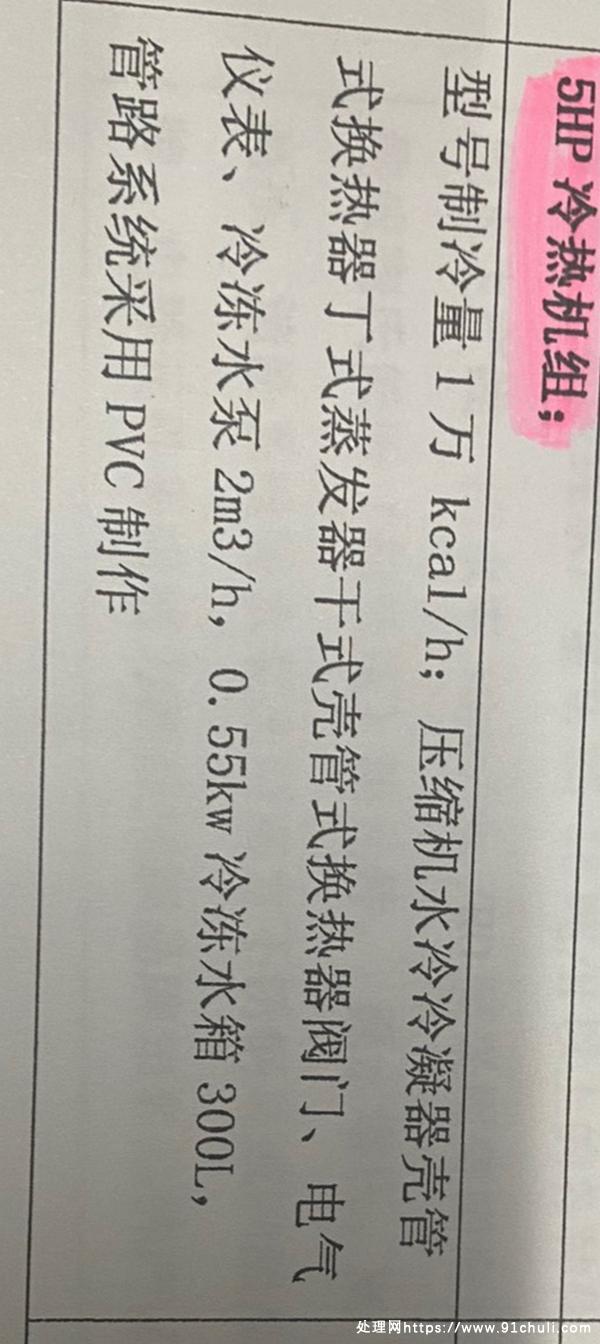 5HP 冷热机组；
型号制冷量 1 万 kcal/h；压缩机水冷冷凝器壳管
式换热器丁式蒸发器干式壳管式换热器阀门、电气
仪表、冷冻水泵 2m3/h，0.55kw 冷冻水箱 300L，
管路系统采用 PVC 制作
处理网https://www.91chuli.com